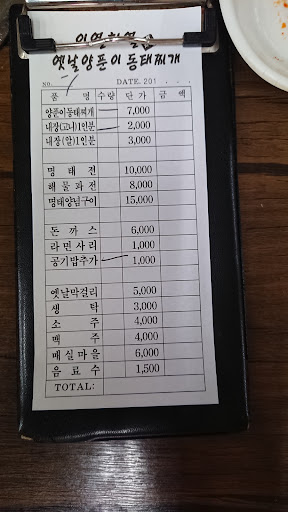 옛날양푼이동태찌개
NO. DATE. 201 . . .
품 명 수량 단가 금 액
양푼이동태찌개 7,000
내장(고니)1인분 2,000
내장(알)1인분 3,000
명 태 전 10,000
해 물 파 전 8,000
명태양념구이 15,000
돈 까 스 6,000
라 면 사 리 1,000
공기밥추가 1,000
옛날막걸리 5,000
생 탁 3,000
소 주 4,000
맥 주 4,000
매실마을 6,000
음 료 수 1,500
TOTAL: